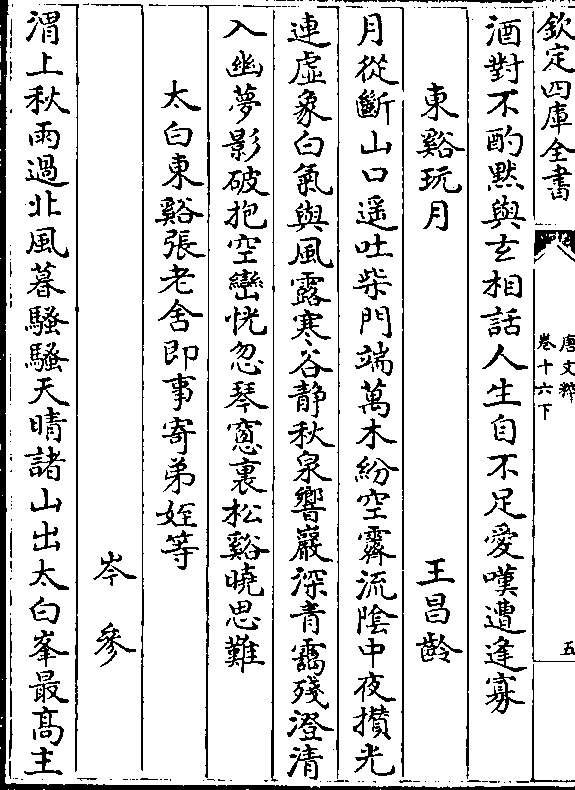 欽定四庫全書
唐文粹
卷十六下
五
酒對不酌黙與玄相話人生自不足愛嘆遭逢寡
東谿玩月
王昌齡
月從斷山口遥吐柴門端萬木紛空霽流隂中夜攅光
連虛象白氣與風露寒谷静秋泉響巖深青靄殘澄清
入幽夢影破抱空巒恍忽琴窓裏松谿曉思難
太白東谿張老舍即事寄弟姪等
岑參
渭上秋雨過北風暮騷騷天晴諸山出太白峯最髙主